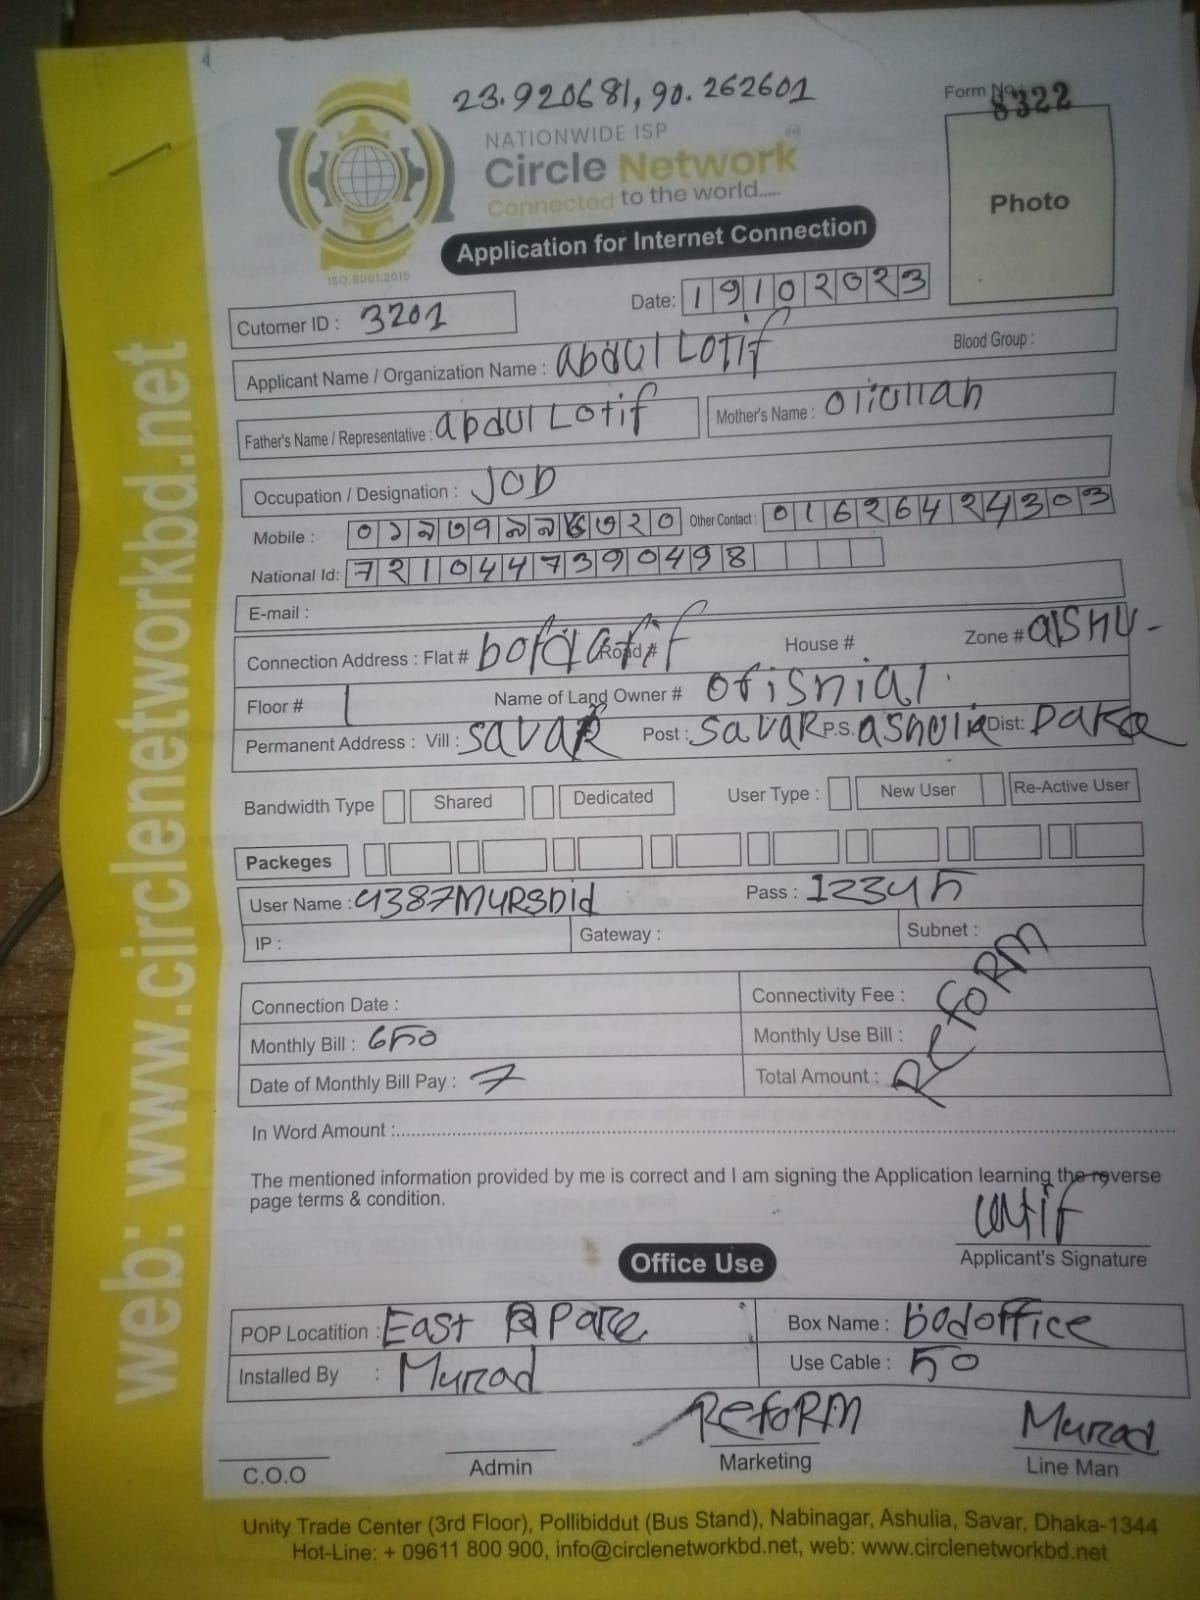 23.920681, 90.262601
Form No. 8322
NATIONWIDE ISP
Circle Network
Connected to the world.....
ISO 9001:2015
Photo
Application for Internet Connection
Date: 19102023
Cutomer ID : 3201
Blood Group :
Applicant Name / Organization Name : abdul Lotif
Father's Name / Representative : abdul Lotif Mother's Name : Oliullah
Occupation / Designation : JOD
Mobile : Other Contact : 01626424303
National Id: 7210447390498
E-mail :
Connection Address : Flat # Road # House # Zone # ashu-
Floor # 1 Name of Land Owner # ofisnial.
Permanent Address : Vill : savaR Post : SavaR P.S. ashulia Dist: Daka
Bandwidth Type Shared Dedicated User Type : New User Re-Active User
Packeges
User Name : 4387MURSDid Pass : 12345
IP : Gateway : Subnet :
Connection Date : Connectivity Fee :
Monthly Bill : 650 Monthly Use Bill :
Date of Monthly Bill Pay : 7 Total Amount :
RefoRM
In Word Amount :
The mentioned information provided by me is correct and I am signing the Application learning the reverse
page terms & condition.
Applicant's Signature
Office Use
POP Locatition : East Para Box Name : bodoffice
Installed By : Murad Use Cable : 50
RefoRM Murad
C.O.O Admin Marketing Line Man
Unity Trade Center (3rd Floor), Pollibiddut (Bus Stand), Nabinagar, Ashulia, Savar, Dhaka-1344
Hot-Line: + 09611 800 900, info@circlenetworkbd.net, web: www.circlenetworkbd.net
web: www.circlenetworkbd.net